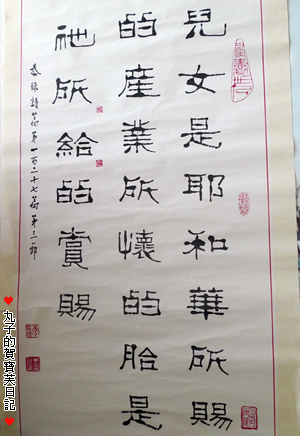 兒女是耶和華所賜
的產業所懷的胎是
祂所給的賞賜
恭錄詩篇第一百二十七篇第三節
丸子的賀寶芙日記